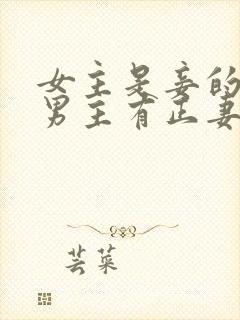 女主是妾的
男主有正妻
芸菜